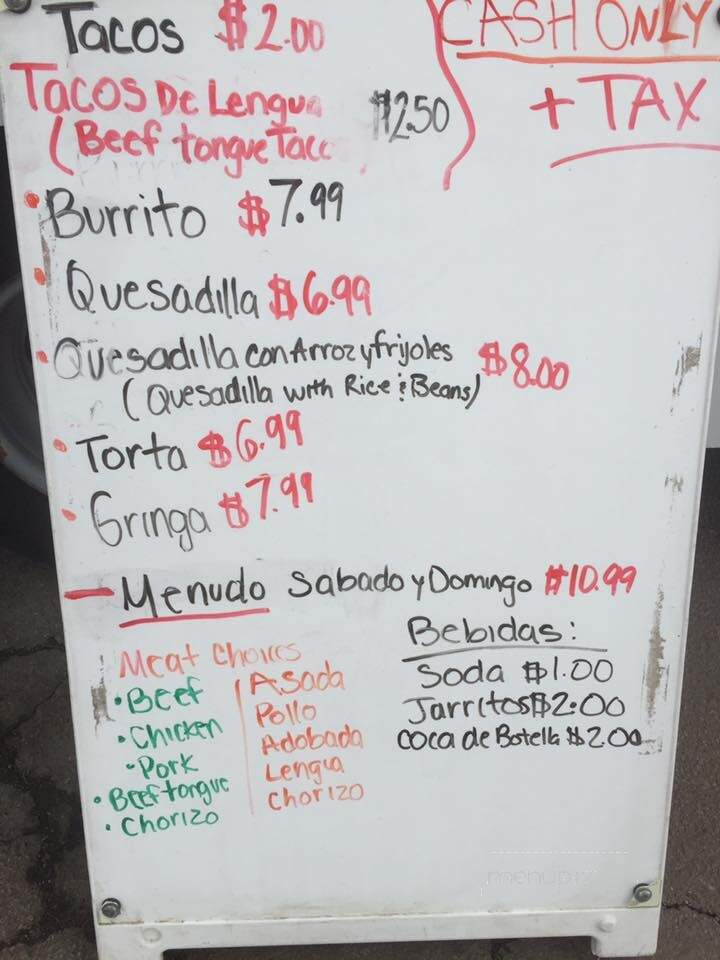 Tacos $2.00
CASH ONLY
+ TAX
Tacos De Lengua $2.50
(Beef tongue Taco
• Burrito $7.99
• Quesadilla $6.99
• Quesadilla con Arroz y frijoles $8.00
(Quesadilla with Rice & Beans)
• Torta $6.99
• Gringa $7.99
— Menudo Sabado y Domingo $10.99
Meat Choices
• Beef
• Chicken
• Pork
• Beef tongue
• Chorizo
Asada
Pollo
Adobada
Lengua
Chorizo
Bebidas:
Soda $1.00
Jarritos $2.00
Coca de Botella $2.00